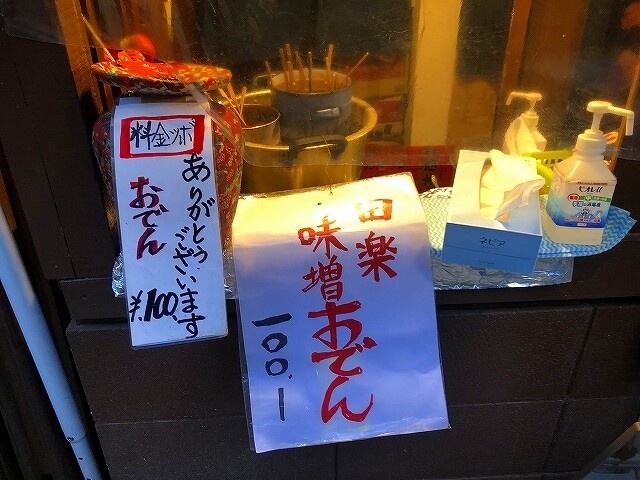 料金ツボ
ありがとう
ございます
おでん
¥.100
田楽
味増おでん
一〇〇.ー
ネピア
ビオレu